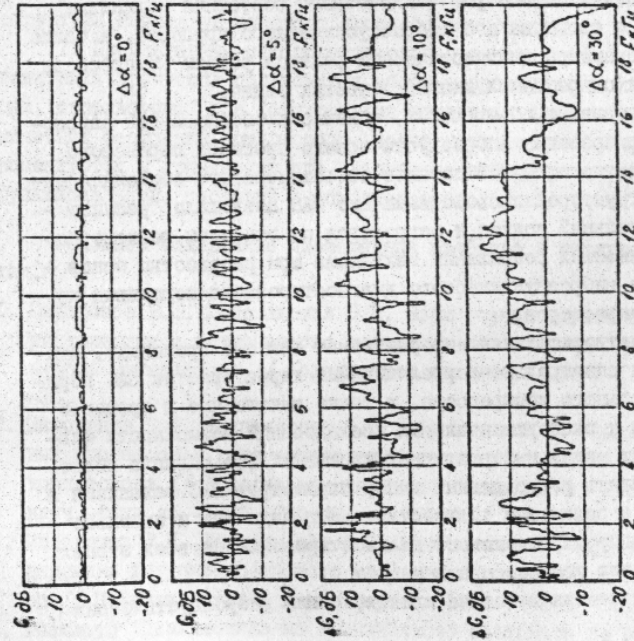 G,дБ
10
0
-10
0 2 4 6 8 10 12 14 16 18 F,кГц
Δα=0°
G,дБ
10
0
-10
-20
0 2 4 6 8 10 12 14 16 18 F,кГц
Δα=5
G,дБ
10
0
-10
-20
0 2 4 6 8 10 12 14 16 18 F,кГц
Δα=10°
G,дБ
10
0
-10
-20
0 2 4 6 8 10 12 14 16 18 F,кГц
Δα=30°